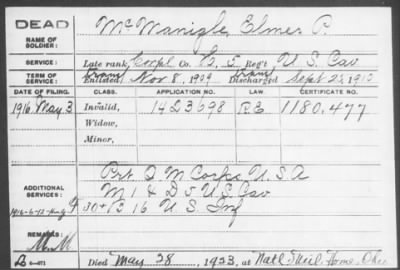 DEAD
NAME OF SOLDIER: McManigle, Elmer P.
SERVICE: Late rank, Corpl Co. Reg't U S Cav
TERM OF SERVICE: Enlisted Nov 8, 1909 Discharged Sept 22, 1910
DATE OF FILING. CLASS. APPLICATION NO. LAW. CERTIFICATE NO.
1916 May 3 Invalid, 1423698 1180.477
Widow,
Minor,
ADDITIONAL SERVICES: Pvt Q M Corps U.S.A
M 1 & D 5 U S Cav
16 U.S. Inf
REMARKS:
Died May 28, 1923, at Natl Mil. Home, Ohio